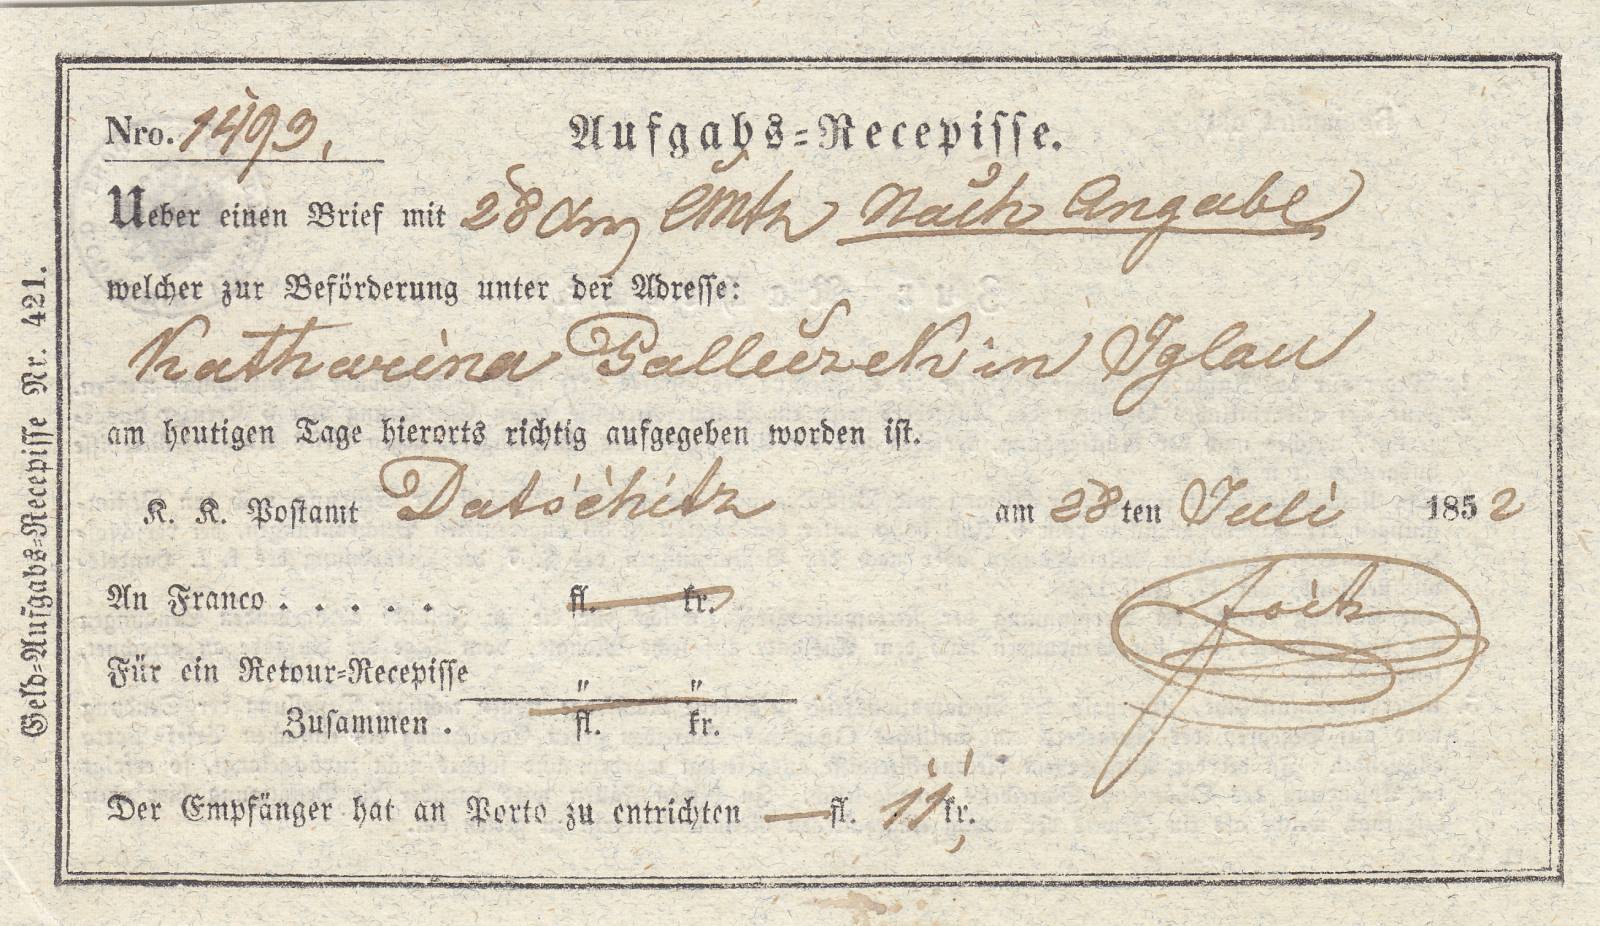 Nro. 1493.
Aufgabs-Recepisse.
Ueber einen Brief mit 28 Nach Angabe
welcher zur Beförderung unter der Adresse:
Katharina Palleczek in Iglau
am heutigen Tage hierorts richtig aufgegeben worden ist.
K. K. Postamt Datschitz am 28ten Juli 1852
An Franco . . . . . fl. — kr.
Für ein Retour-Recepisse " "
Zusammen . fl. kr.
Der Empfänger hat an Porto zu entrichten — fl. 11 kr.
Geld-Aufgabs-Recepisse Nr. 421.